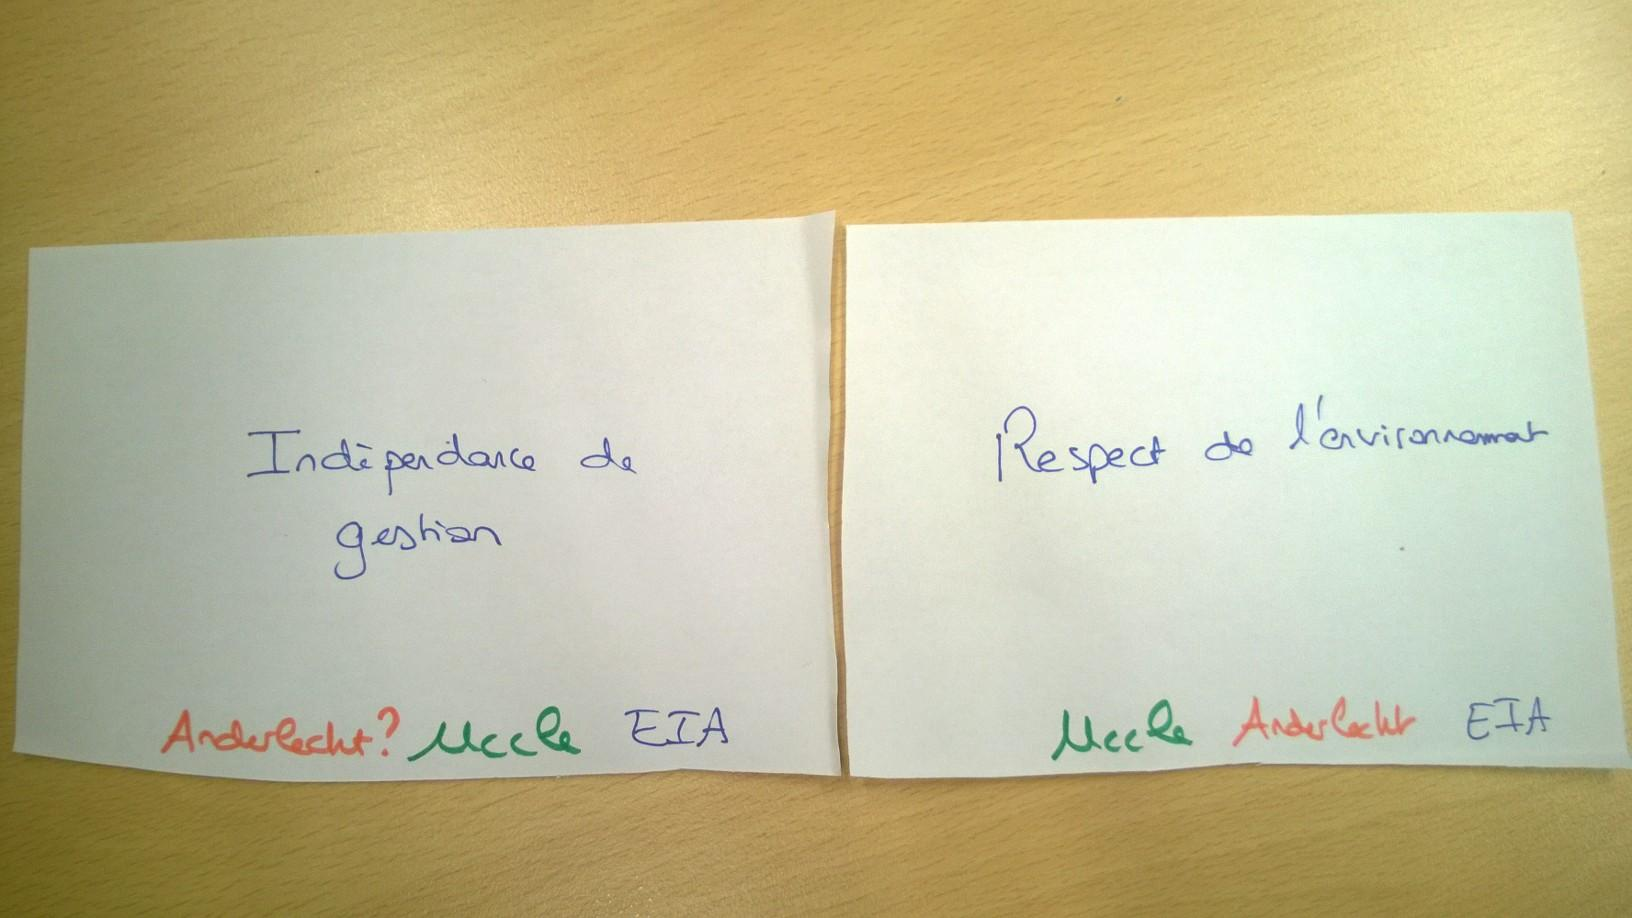 Indèpendance de
gestion
Anderlecht? Uccle EIA
Respect de l'environnement
Uccle Anderlecht EIA